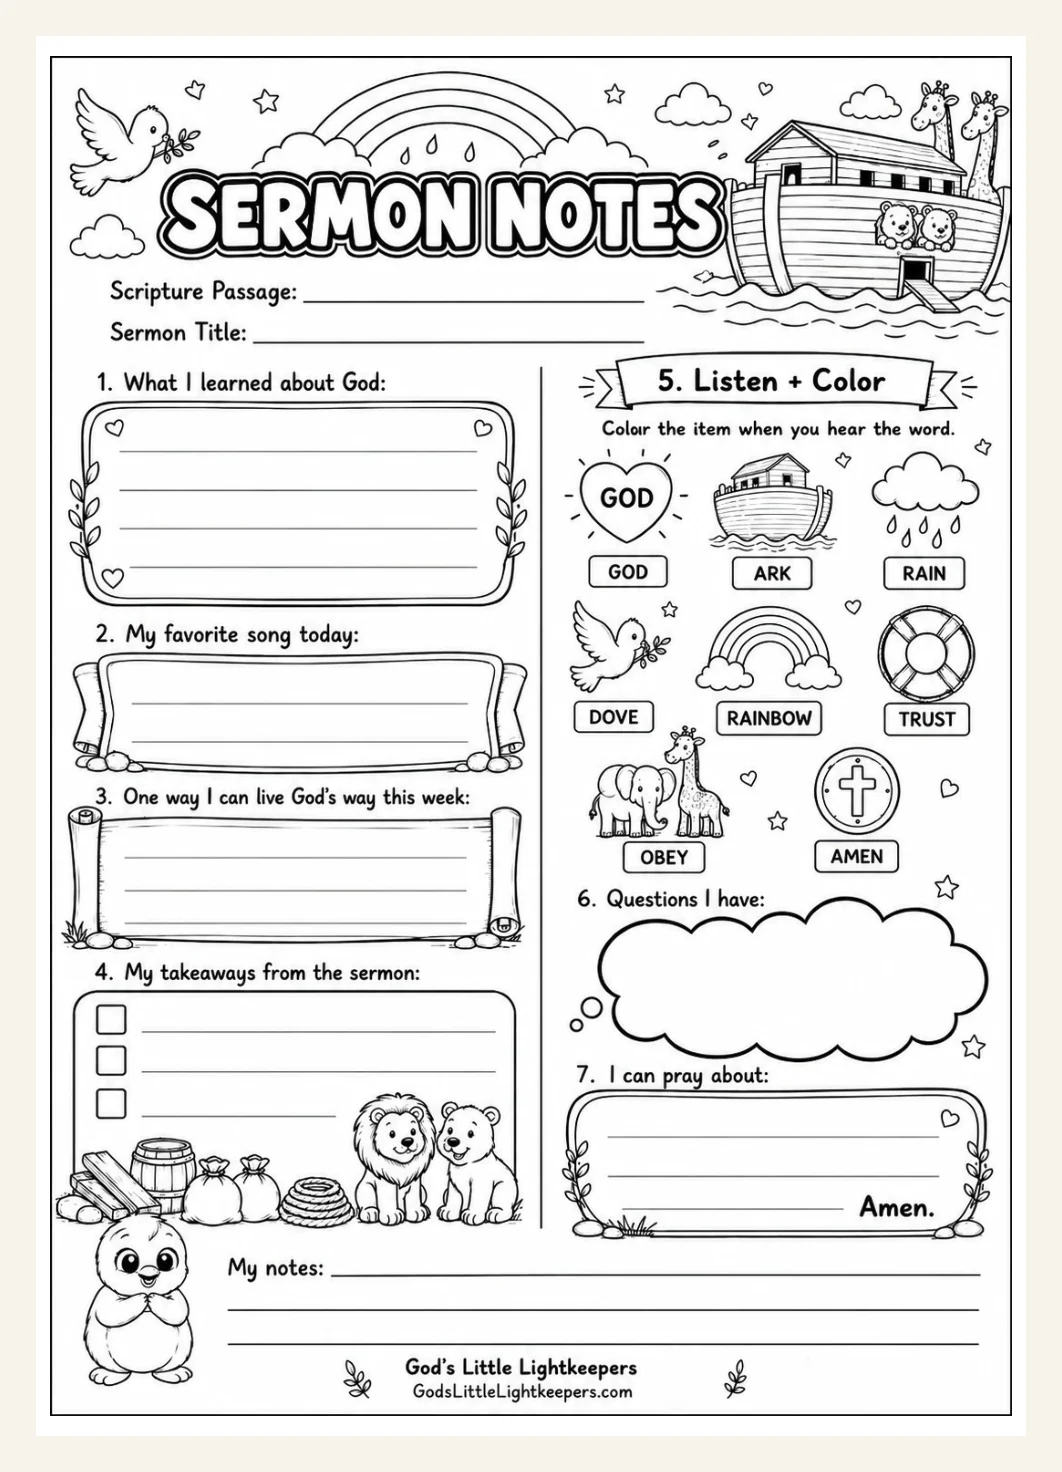 SERMON NOTES
Scripture Passage:
Sermon Title:
1. What I learned about God:
2. My favorite song today:
3. One way I can live God's way this week:
4. My takeaways from the sermon:
5. Listen + Color
Color the item when you hear the word.
GOD
GOD
ARK
RAIN
DOVE
RAINBOW
TRUST
OBEY
AMEN
6. Questions I have:
7. I can pray about:
Amen.
My notes:
God's Little Lightkeepers
GodsLittleLightkeepers.com